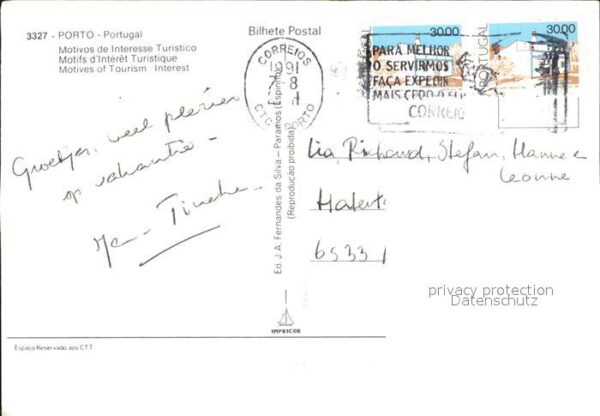 3327 - PORTO - Portugal
Motivos de Interesse Turistico
Motifs d'Intérêt Turistique
Motives of Tourism Interest
Bilhete Postal
CORREIOS
1991
8
CTC PORTO
PARA MELHOR
O SERVIRMOS
FAÇA EXPEDIR
MAIS CEDO O SEU
CORREIO
30.00
PORTUGAL
30.00
Groetjes, veel plezier
op vakantie -
Tineke
Ed. J. A. Fernandes da Silva — Paramos (Espinho)
(Reprodução proibida)
Lia, Richard, Stefan, Hanne
Leonne
6533
privacy protection
Datenschutz
IMPRICOR
Espaço Reservado aos CTT